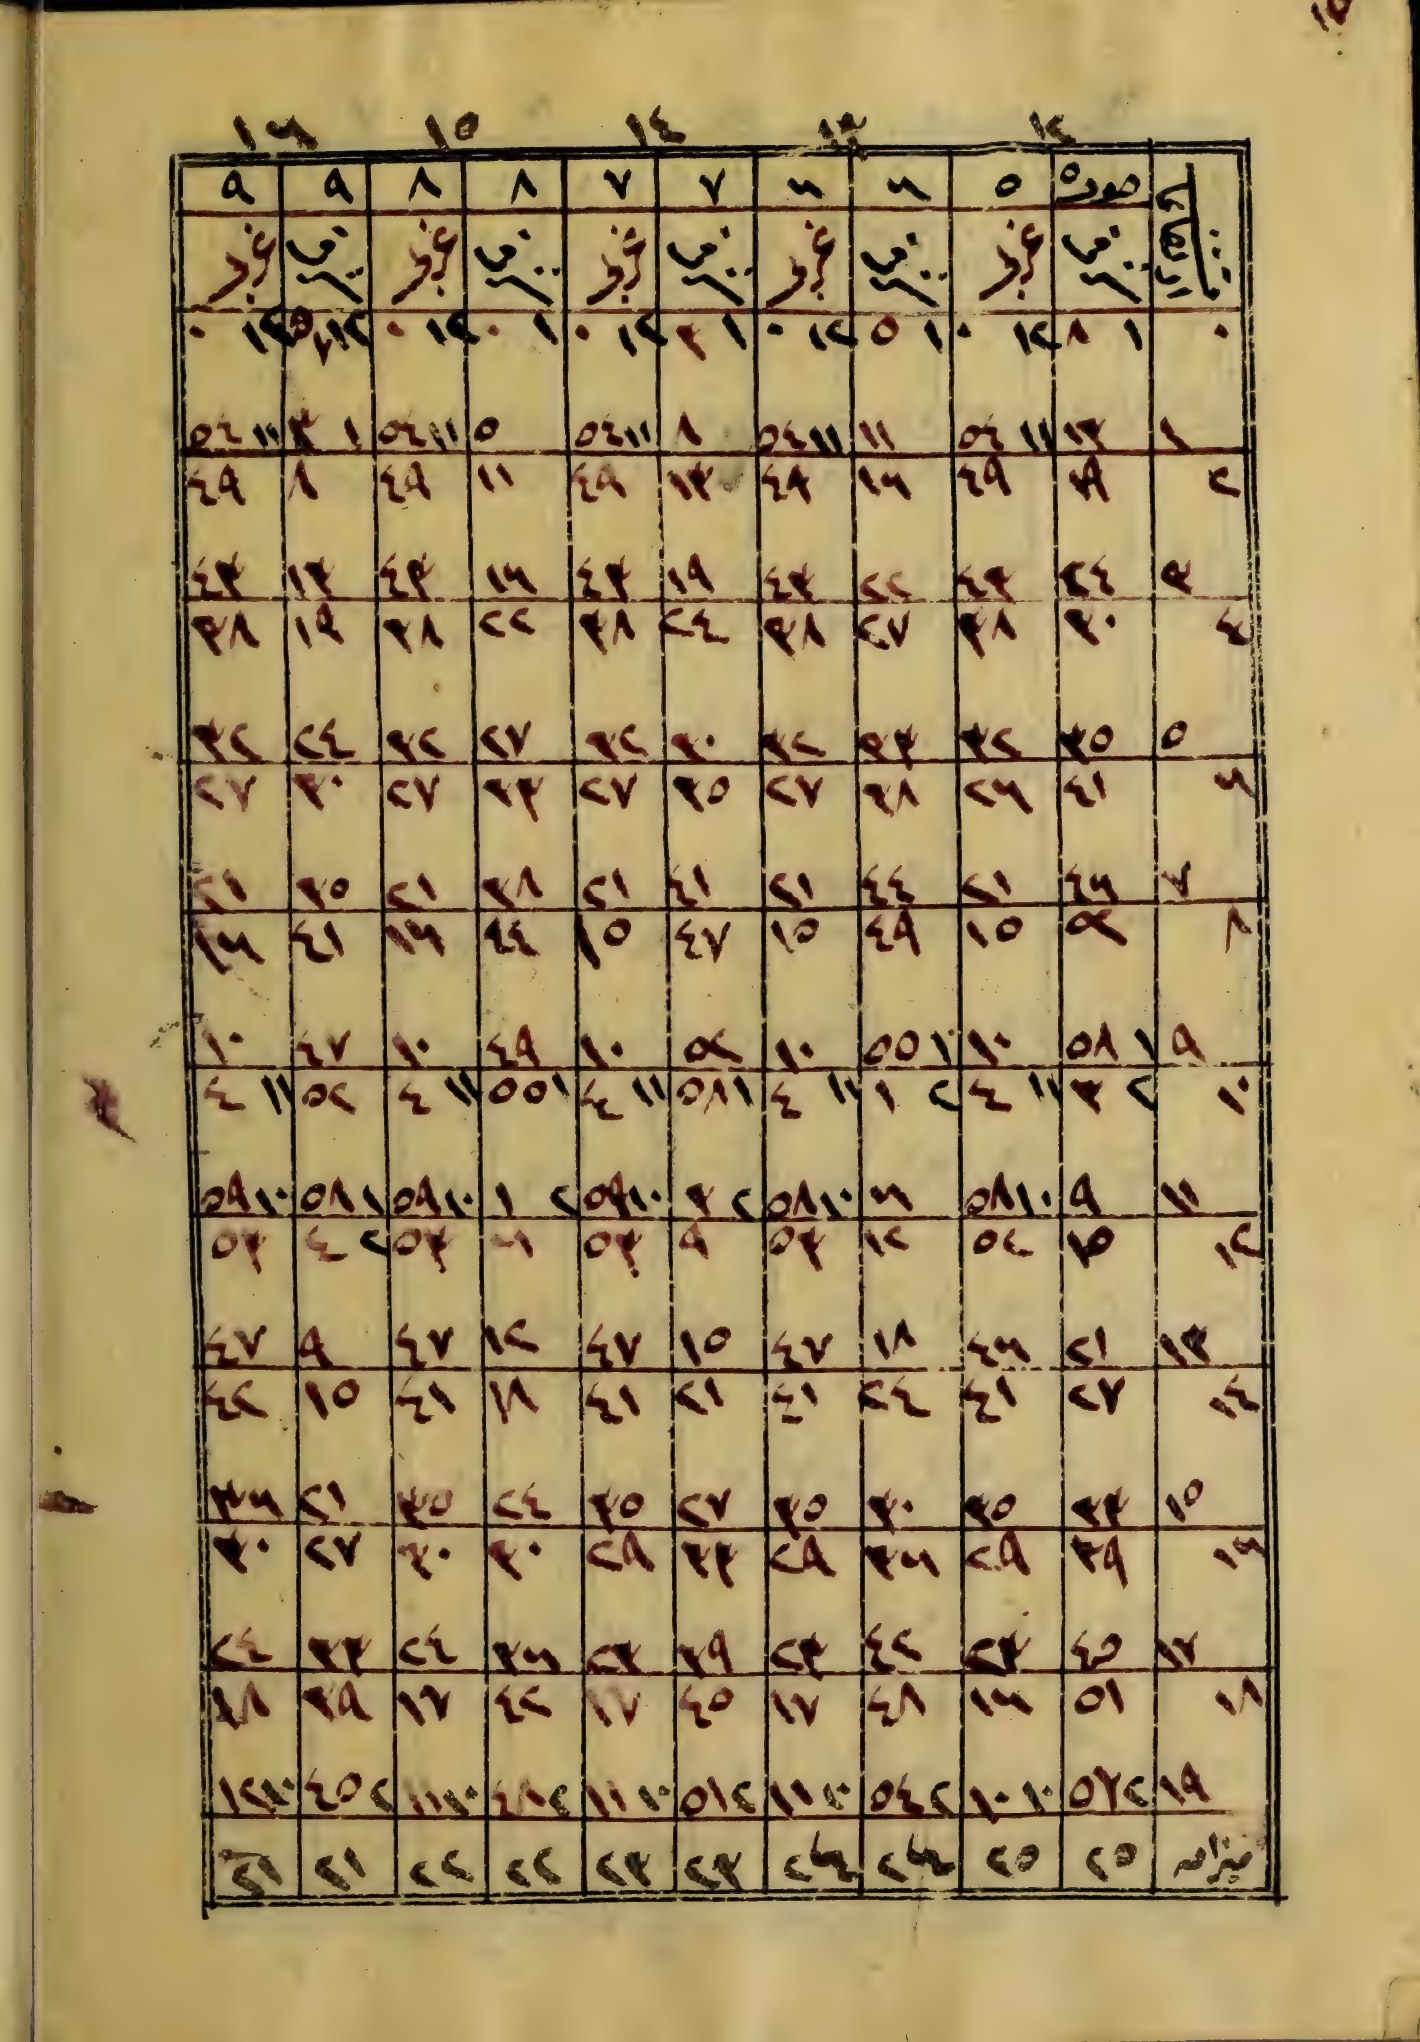 ١٢ ١٣ ١٤ ١٥ ١٦
حوت ٥ ٥ ٦ ٦ ٧ ٧ ٨ ٨ ٩ ٩
غرب غرب غرب غرب غرب
٠ ١ ٨ ١٢ ٠ ١ ٥ ١٢ ٠ ١ ٣ ١٢ ٠ ١ ٠ ١٢ ٠ ١٢ ٥٧ ١٢ ٠
١ ١٣ ١١ ٥٤ ١١ ١١ ٥٤ ٨ ١١ ٥٤ ٥ ١١ ٥٤ ١ ٣ ١١ ٥٤
٢ ١٩ ٤٩ ١٦ ٤٩ ١٣ ٤٩ ١١ ٤٩ ٨ ٤٩
٣ ٢٤ ٤٣ ٢٢ ٤٣ ١٩ ٤٣ ١٦ ٤٣ ١٣ ٤٣
٤ ٣٠ ٣٨ ٢٧ ٣٨ ٢٤ ٣٨ ٢٢ ٣٨ ١٩ ٣٨
٥ ٣٥ ٣٢ ٣٣ ٣٢ ٣٠ ٣٢ ٢٧ ٣٢ ٢٤ ٣٢
٦ ٤١ ٢٦ ٣٨ ٢٧ ٣٥ ٢٧ ٣٣ ٢٧ ٣٠ ٢٧
٧ ٤٦ ٢١ ٤٤ ٢١ ٤١ ٢١ ٣٨ ٢١ ٣٥ ٢١
٨ ٥٢ ١٥ ٤٩ ١٥ ٤٧ ١٥ ٤٤ ١٦ ٤١ ١٦
٩ ١ ٥٨ ١٠ ١ ٥٥ ١٠ ٥٢ ١٠ ٤٩ ١٠ ٤٧ ١٠
١٠ ٢ ٣ ١١ ٤ ٢ ١ ١١ ٤ ١ ٥٨ ١١ ٤ ١ ٥٥ ١١ ٤ ٥٢ ١١ ٤
١١ ٩ ١٠ ٥٨ ٦ ١٠ ٥٨ ٢ ٣ ١٠ ٥٩ ٢ ١ ١٠ ٥٩ ١ ٥٨ ١٠ ٥٩
١٢ ١٥ ٥٢ ١٢ ٥٣ ٩ ٥٣ ٦ ٥٣ ٢ ٤ ٥٣
١٣ ٢١ ٤٦ ١٨ ٤٧ ١٥ ٤٧ ١٢ ٤٧ ٩ ٤٧
١٤ ٢٧ ٤١ ٢٤ ٤١ ٢١ ٤١ ١٨ ٤١ ١٥ ٤٢
١٥ ٣٣ ٣٥ ٣٠ ٣٥ ٢٧ ٣٥ ٢٤ ٣٥ ٢١ ٣٦
١٦ ٣٩ ٢٩ ٣٦ ٢٩ ٣٣ ٢٩ ٣٠ ٣٠ ٢٧ ٣٠
١٧ ٤٥ ٢٣ ٤٢ ٢٣ ٣٩ ٢٣ ٣٦ ٢٤ ٣٣ ٢٤
١٨ ٥١ ١٦ ٤٨ ١٧ ٤٥ ١٧ ٤٢ ١٧ ٣٩ ١٨
١٩ ٢ ٥٧ ١٠ ١٠ ٢ ٥٤ ١٠ ١١ ٢ ٥١ ١٠ ١١ ٢ ٤٨ ١٠ ١١ ٢ ٤٥ ١٠ ١٢
ميزان ٢٥ ٢٥ ٢٤ ٢٤ ٢٣ ٢٣ ٢٢ ٢٢ ٢١ ٢١